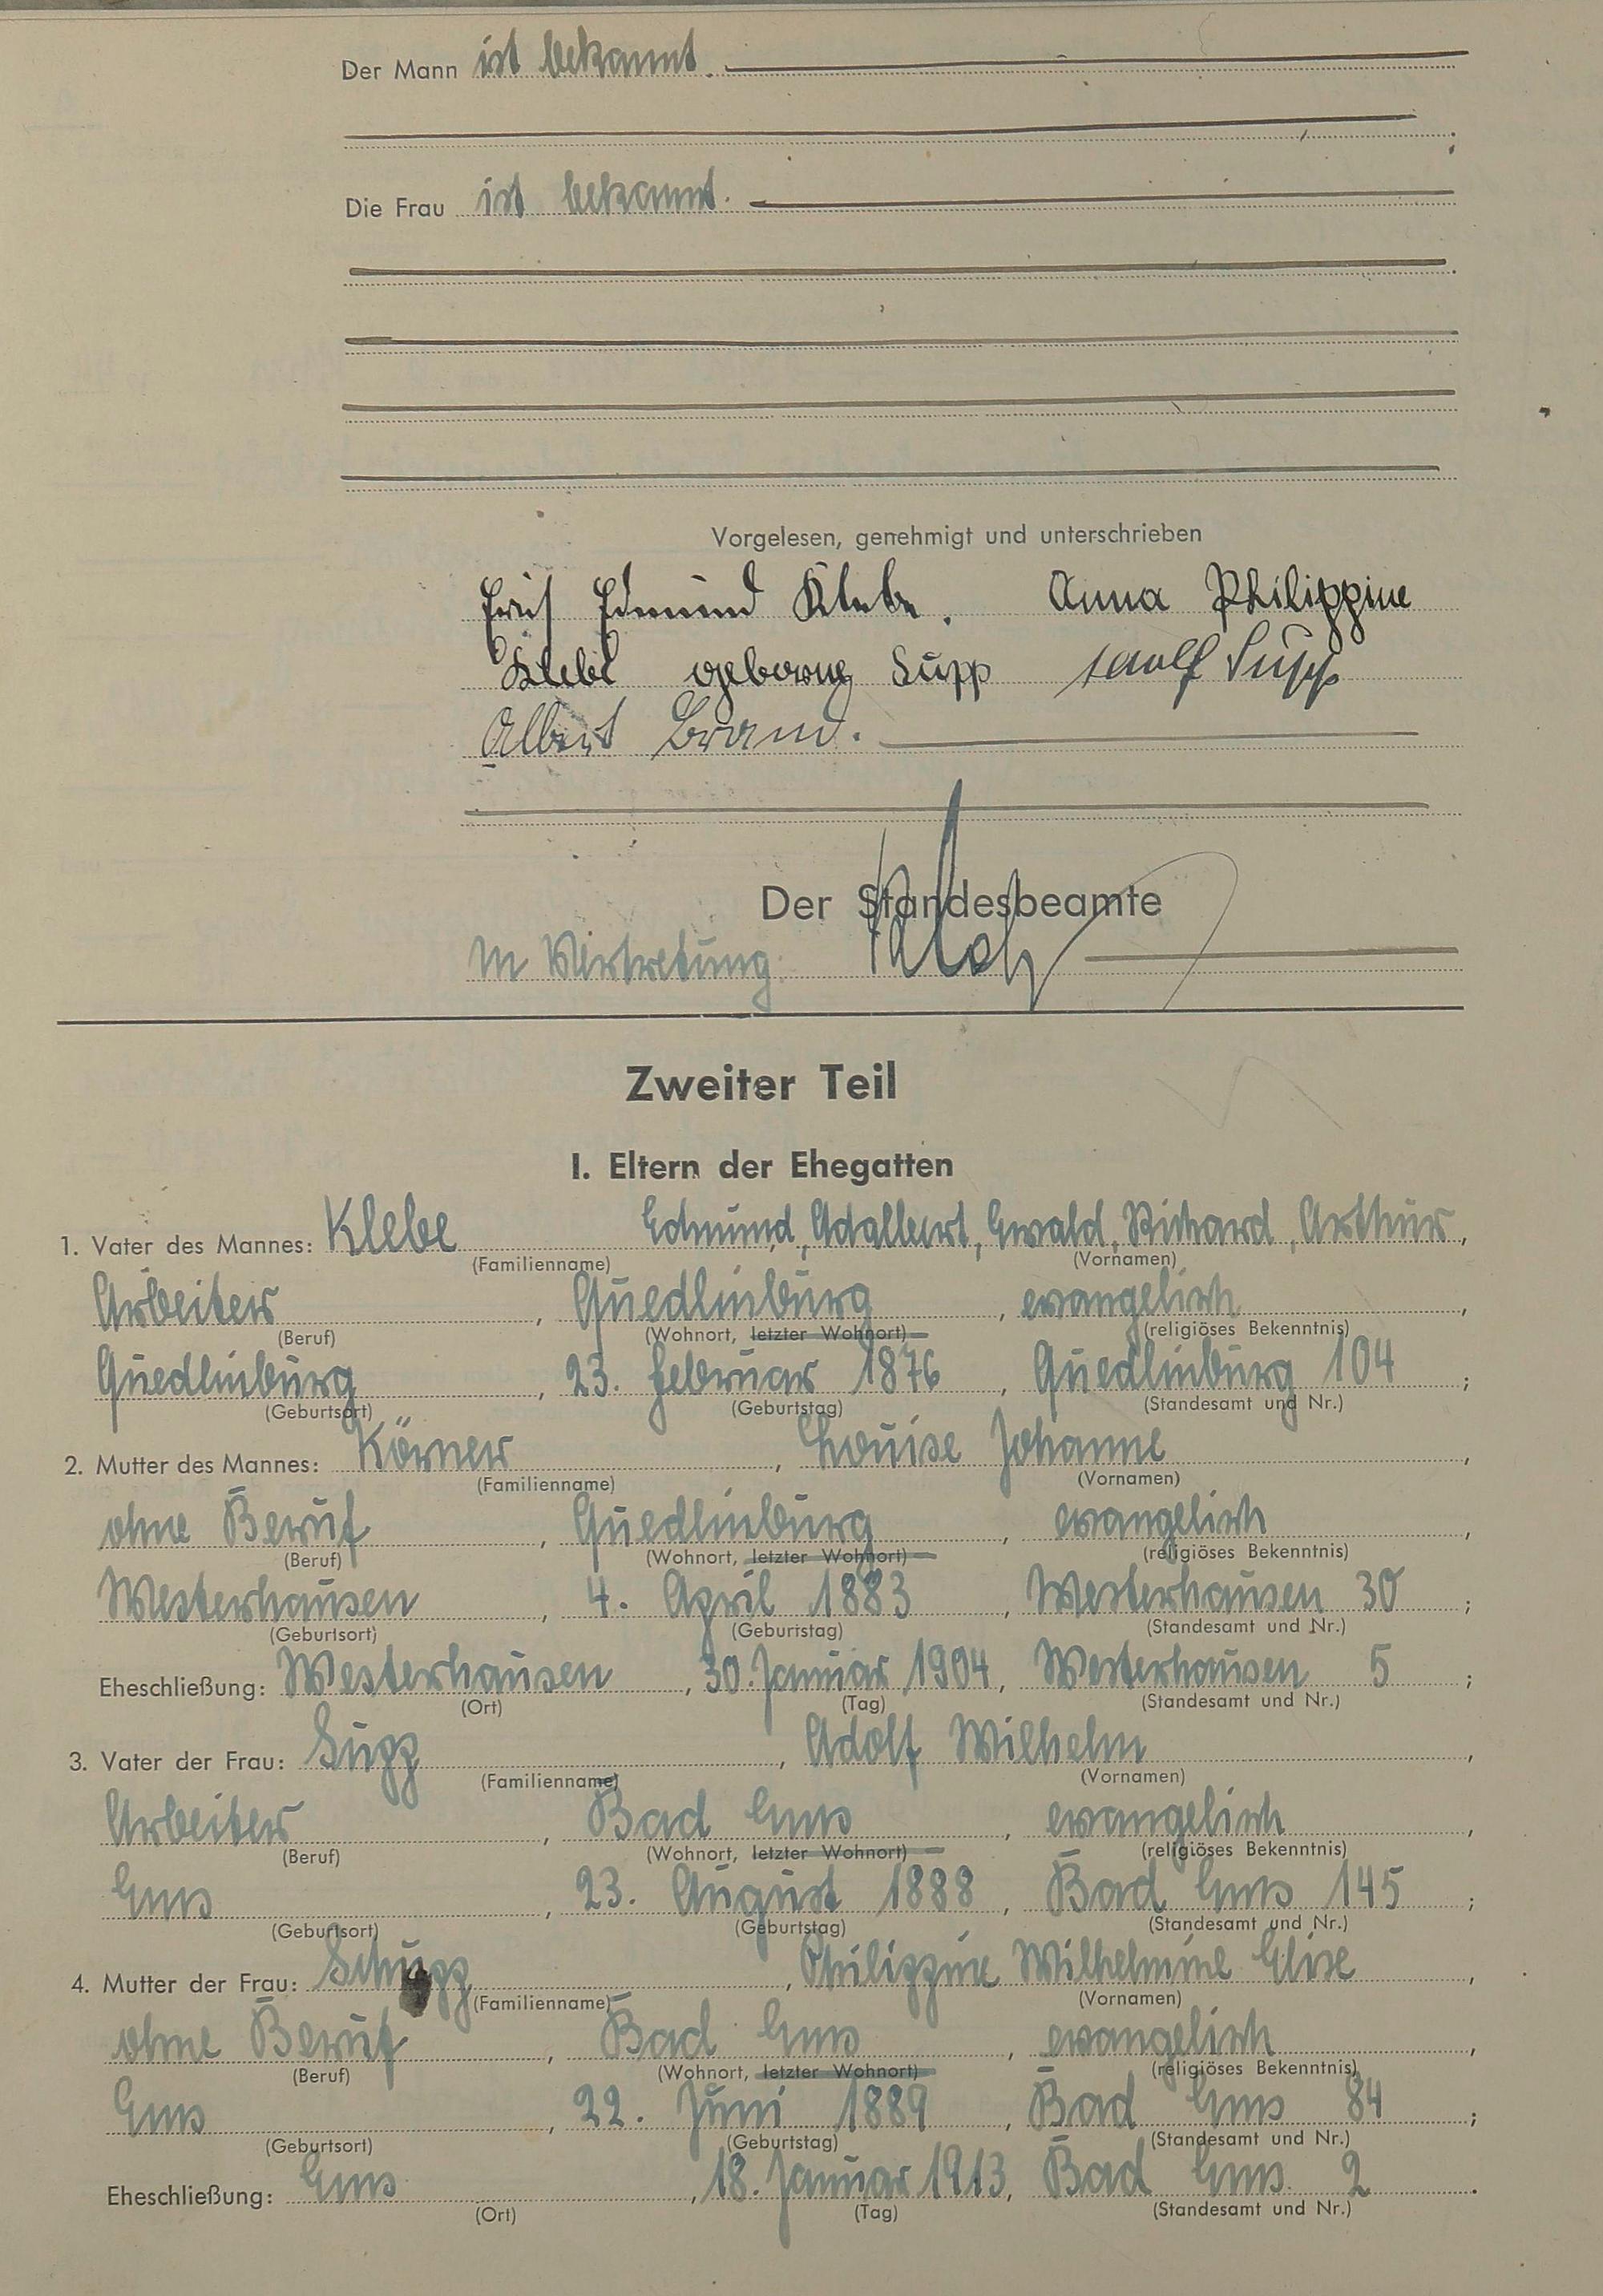 Der Mann ist bekannt.
Die Frau ist bekannt.
Vorgelesen, genehmigt und unterschrieben
Erich Edmund Klebe. Anna Philippine
Klebe geborene Supp Adolf Supp
Albert Brand.
Der Standesbeamte
In Vertretung:
Zweiter Teil
I. Eltern der Ehegatten
1. Vater des Mannes: Klebe Edmund, Adalbert, Ewald, Richard, Arthur,
(Familienname) (Vornamen)
Arbeiter, Quedlinburg, evangelisch,
(Beruf) (Wohnort, letzter Wohnort) (religiöses Bekenntnis)
Quedlinburg, 23. Februar 1876, Quedlinburg 104;
(Geburtsort) (Geburtstag) (Standesamt und Nr.)
2. Mutter des Mannes: Körner, Louise Johanne,
(Familienname) (Vornamen)
ohne Beruf, Quedlinburg, evangelisch,
(Beruf) (Wohnort, letzter Wohnort) (religiöses Bekenntnis)
Westerhausen, 4. April 1883, Westerhausen 30;
(Geburtsort) (Geburtstag) (Standesamt und Nr.)
Eheschließung: Westerhausen, 30. Januar 1904, Westerhausen 5;
(Ort) (Tag) (Standesamt und Nr.)
3. Vater der Frau: Supp, Adolf Wilhelm,
(Familienname) (Vornamen)
Arbeiter, Bad Ems, evangelisch,
(Beruf) (Wohnort, letzter Wohnort) (religiöses Bekenntnis)
Ems, 23. August 1888, Bad Ems 145;
(Geburtsort) (Geburtstag) (Standesamt und Nr.)
4. Mutter der Frau: Schupp, Philippine Wilhelmine Elise,
(Familienname) (Vornamen)
ohne Beruf, Bad Ems, evangelisch,
(Beruf) (Wohnort, letzter Wohnort) (religiöses Bekenntnis)
Ems, 22. Juni 1889, Bad Ems 84;
(Geburtsort) (Geburtstag) (Standesamt und Nr.)
Eheschließung: Ems, 18. Januar 1913, Bad Ems 2.
(Ort) (Tag) (Standesamt und Nr.)